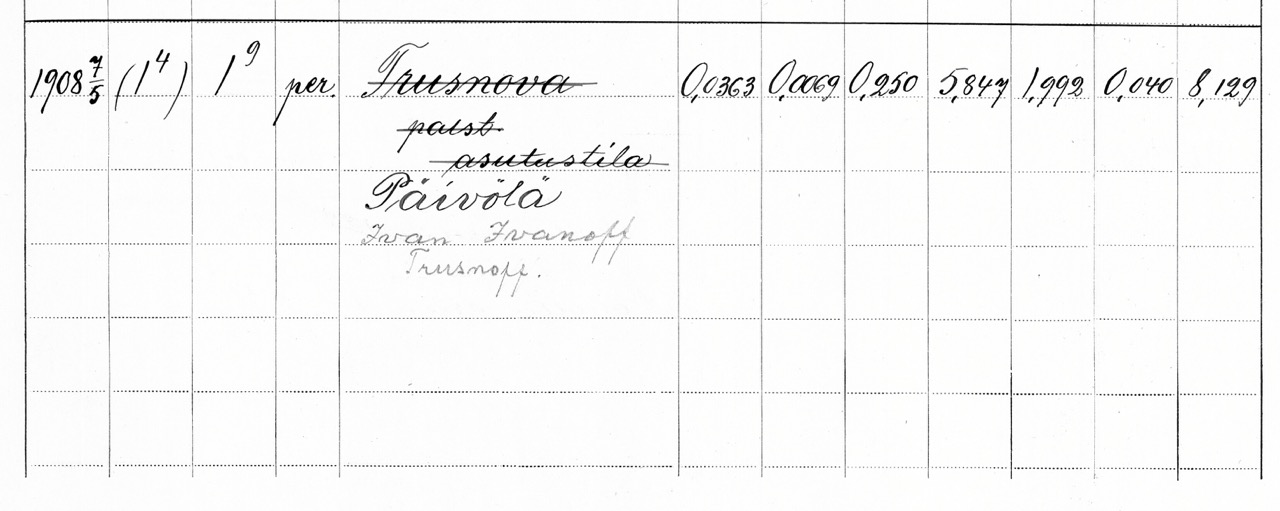 1908 7/5 (1⁴) 1⁹ per. Trusnova 0,0363 0,0069 0,250 5,847 1,992 0,040 8,129
paist.
asutustila
Päivölä
Ivan Ivanoff
Trusnoff.